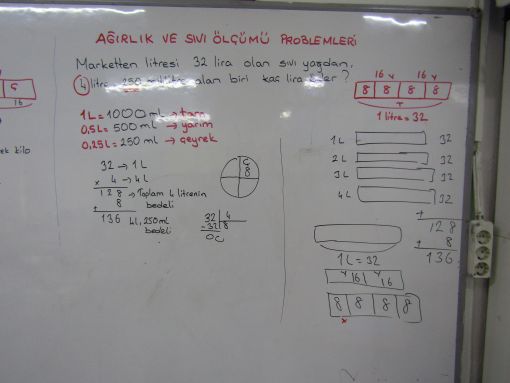 AĞIRLIK VE SIVI ÖLÇÜMÜ PROBLEMLERİ
Marketten litresi 32 lira olan sıvı yağdan,
4 litre 250 alan biri kaç lira öder?
1L = 1000 ml → tam
0,5L = 500 ml → yarım
0,25L = 250 ml → çeyrek
32 → 1L
x 4 → 4L
128 → Toplam 4 litrenin bedeli
+ 8
136 4L, 250ml bedeli
Ç
8
32 4
-32 8
00
Ç
16
rek kilo
16 Y 16 Y
8 8 8 8
T
1 litre = 32
1L 32
2L 32
3L 32
4L 32
+
128
+ 8
136
1L = 32
Y 16 Y 16
8 8 8 8
x